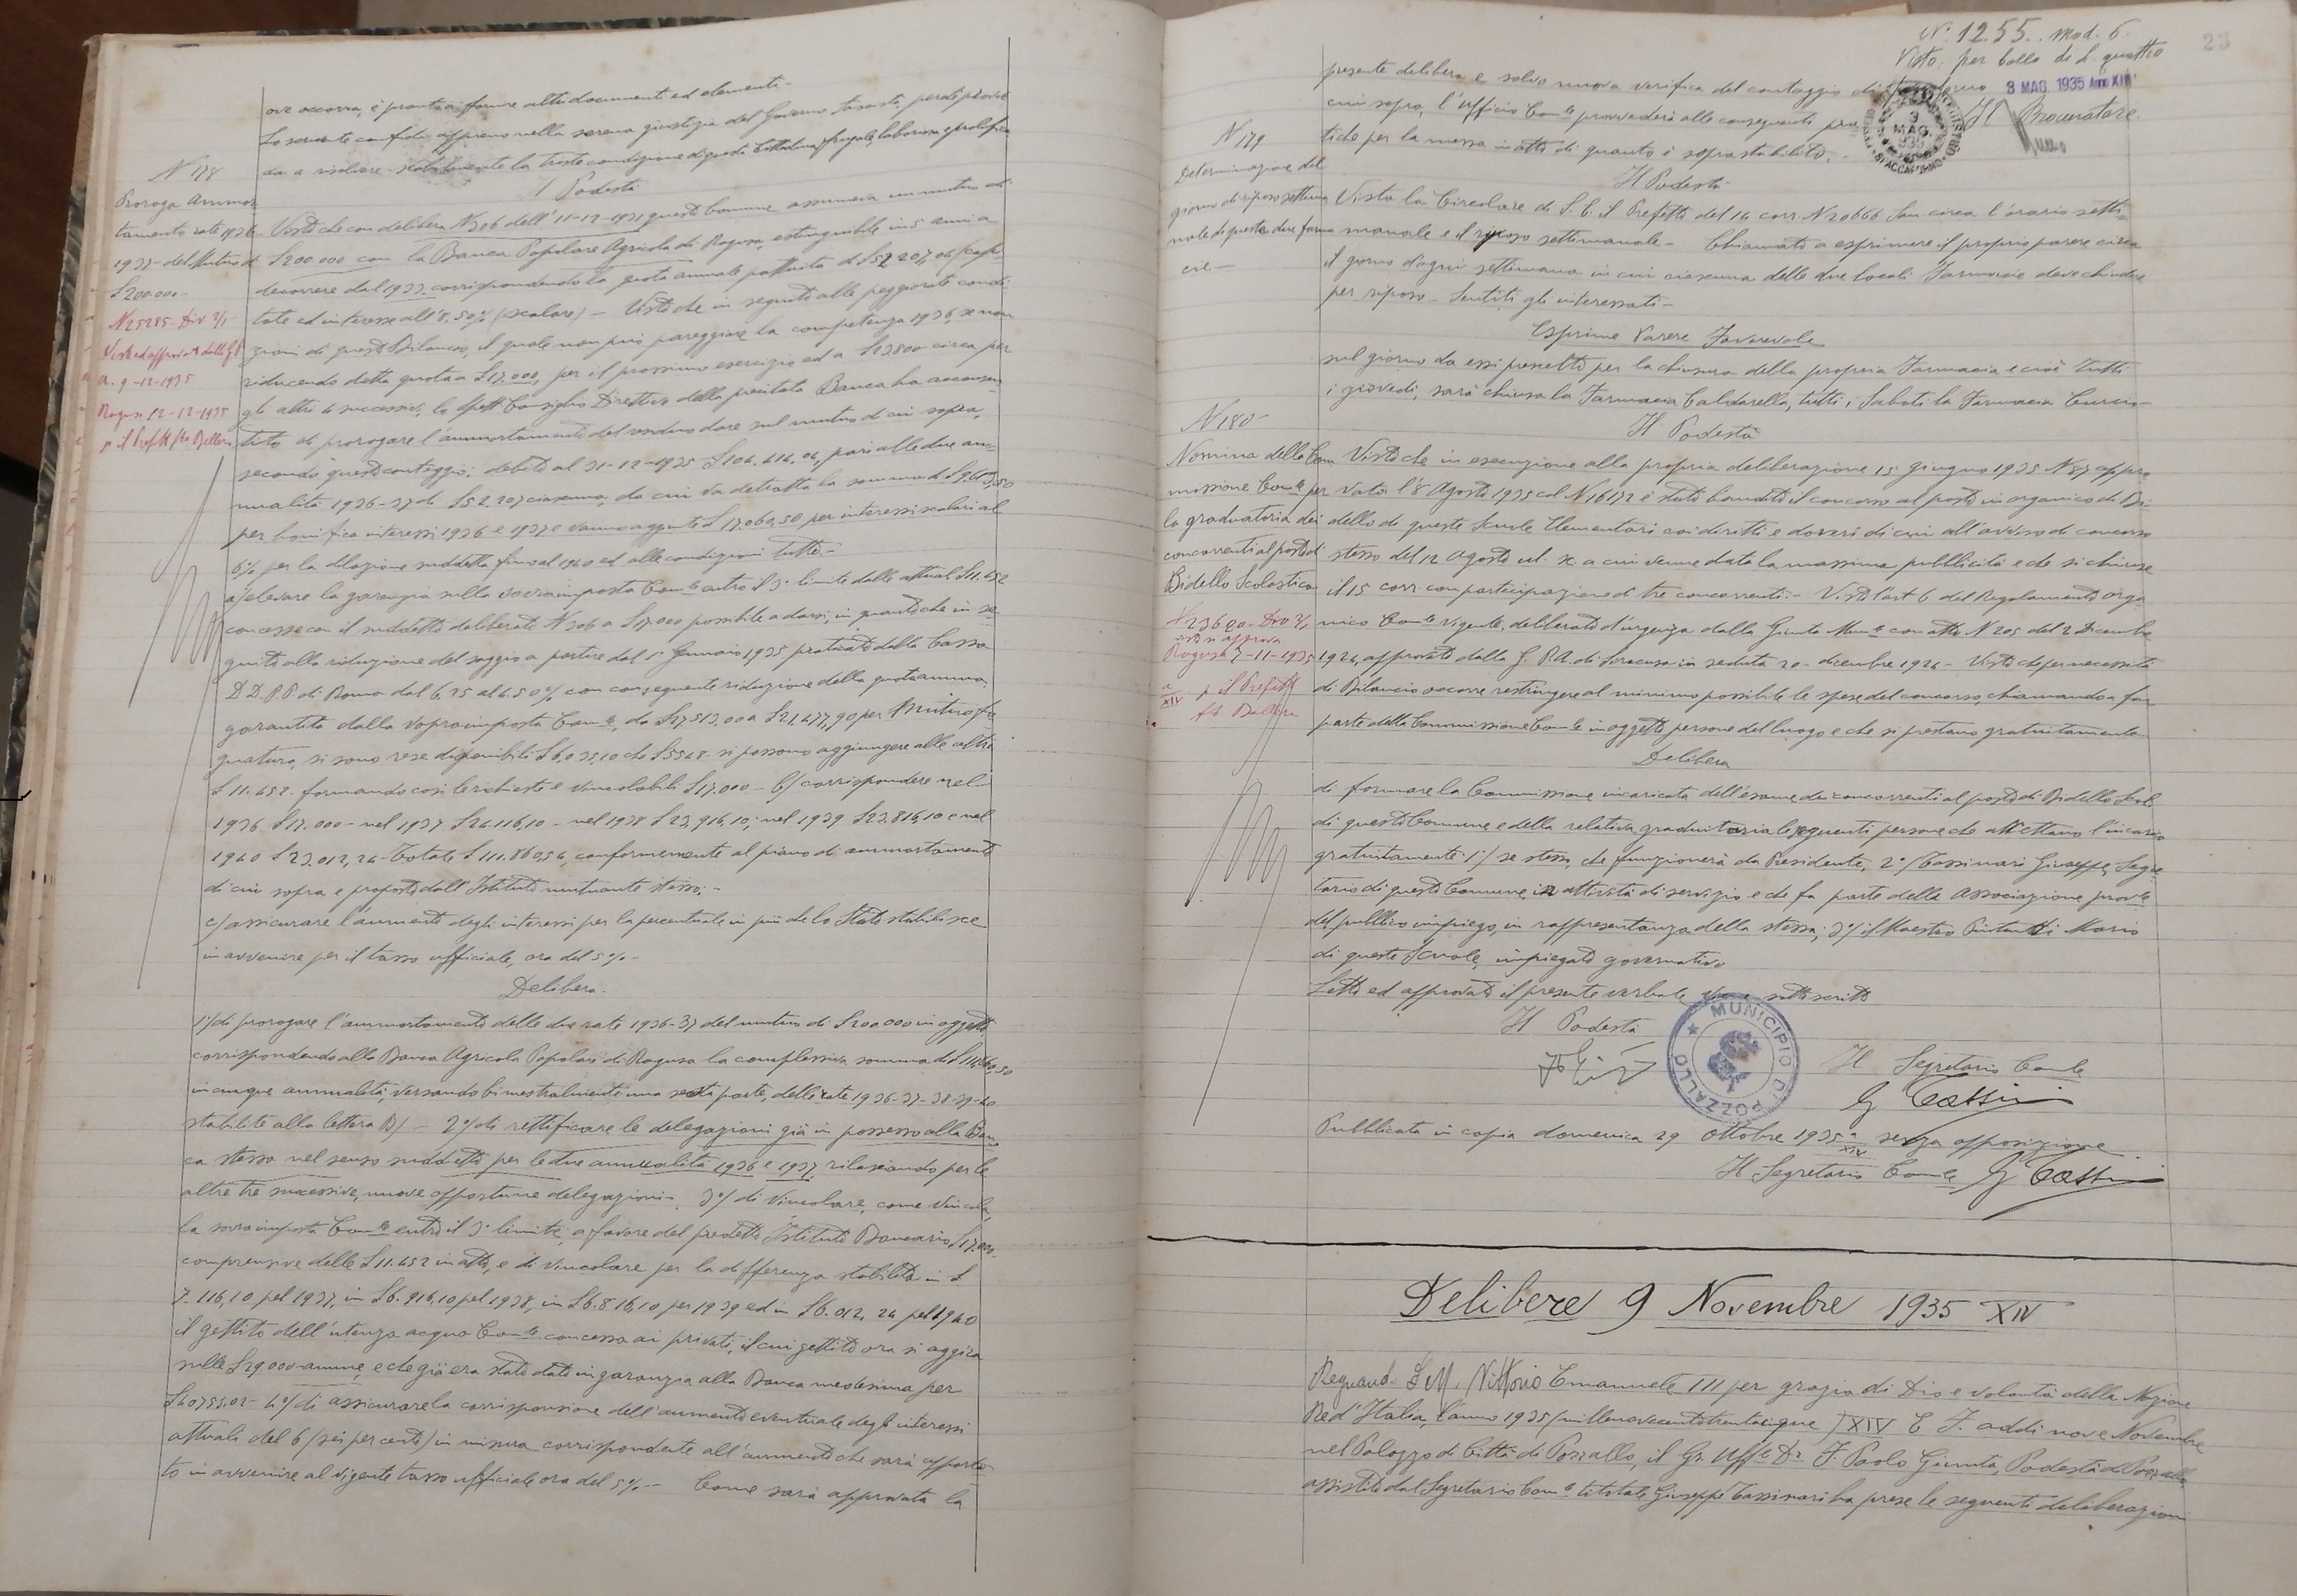 ove occorra, è pronto a fornire altri documenti ed elementi.-
Lo scrivente confida appieno nella serena giustizia del Governo fascista, perchè
la triste condizione di questa Cittadina, frugale, laboriosa e prolifica
Il Podestà
N 178
Proroga Ammor
tamento rate 1936-
1937- del Mutuo di
£ 200.000-
N 25285- Div 2/1
Visto ed approvato dalla G P
A. 9-12-1935
Ragusa 12-12-1935
p il Prefetto fto Dallera
Visto che con delibera N 306 dell'11-12-1931 questo Comune assumeva un mutuo di
£ 200.000 con la Banca Popolare Agricola di Ragusa, estinguibile in 5 anni a
decorrere dal 1933 corrispondendo la quota annuale pattuita di £ 52.207,04 capi
tale ed interesse all'8.50% (scalare) - Visto che in seguito alle peggiorate condi
zioni di questo Bilancio, il quale non può pareggiare la competenza 1936, se non
riducendo detta quota a £ 17.000, per il prossimo esercizio ed a £ 23800 circa per
gli altri 4 successivi, lo Spett Consiglio Direttivo della precitata Banca ha acconsen
tito di prorogare l'ammortamento del residuo dare sul mutuo di cui sopra,
secondo questo conteggio: debito al 31-12-1935 £ 104.414,04, pari alle due an
nualità 1936-37 di £ 52.207 ciascuna, da cui va detratta la somma di £
per bonifica interessi 1936 e 1937 e vanno aggiunte £ 17.060,50 per interessi scalari al
6% per la dilazione suddetta fino al 1940 ed alle condizioni tutte.-
a) elevare la garenzia sulla sovraimposta Comle entro il 3° limite dalle attuali £ 11.452
concesse con il suddetto deliberato N 306 a £ 17.000 possibile a darsi, in quanto che in se
guito alla riduzione del saggio a partire dal 1° Gennaio 1935 praticato dalla Cassa
D D. P. P di Roma dal 6,25 al 4.50% con conseguente riduzione della quota annua,
garantita dalla sopraimposta Comle, da £ 27.513,00 a £ 21.477,90 per Mutuo fo
gnatura, si sono rese disponibili £ 6,035,10 che £ 5548- si possono aggiungere alle altre
£ 11.452- formando così le richieste e vincolabili £ 17.000- b) corrispondere nel
1936 £ 17.000- nel 1937 £ 24.116,10- nel 1938 £ 23,916,10; nel 1939 £ 23.816,10 e nel
1940 £ 23.012,24- Totale £ 111.860,54, conformemente al piano di ammortamento
di cui sopra e proposto dall'Istituto mutuante stesso;-
c) assicurare l'aumento degli interessi per la percentuale in più che lo Stato stabilisce
in avvenire per il tasso ufficiale, ora del 5%-
Delibera.
1°/ di prorogare l'ammortamento delle due rate 1936-37 del mutuo di £ 200.000 in oggetto
corrispondendo alla Banca Agricola Popolare di Ragusa la complessiva somma di £
in cinque annualità, versando bimestralmente una sesta parte, delle rate 1936-37-38-39-40
stabilite alla lettera B)- 2°/ di rettificare le delegazioni già in possesso alla Ban
ca stessa nel senso suddetto per le due annualità 1936 e 1937, rilasciando per le
altre tre successive, nuove opportune delegazioni-. 3°/ di vincolare, come vincola,
la sovraimposta Comle entro il 3° limite, a favore del predetto Istituto Bancario £ 17.000
comprensive delle £ 11.452 in atto, e di vincolare per la differenza stabilita in £
7.116,10 pel 1937, in £ 6.916,10 pel 1938, in £ 6.816,10 per 1939 ed in £ 6.012,24 pel 1940
il gettito dell'utenza acqua Comle concessa ai privati, il cui gettito ora si aggira
sulle £ 29.000- annue, e che già era stato dato in garanzia alla Banca medesima per
£ 40755,02- 4°/ di assicurare la corrisponsione dell'aumento eventuale degli interessi
attuali del 6 (sei per cento) in misura corrispondente all'aumento che sarà appor
to in avvenire al vigente tasso ufficiale ora del 5%-- Come sarà approvata la
N. 1255. Mod. 6.
Visto: per bollo di £. quattro
23
3 MAG. 1935 Anno XIII
Il Procuratore
presente delibera e salvo nuova verifica del conteggio
cui sopra, l'ufficio Comle provvederà alle conseguenti pra
tiche per la messa in atto di quanto è soprastabilito.-
N 179
Determinazione del
giorno di riposo settima
nale di queste due farma
cie-
Il Podestà
Vista la Circolare di S. E. il Prefetto del 14 corr. N 20666 San circa l'orario setti
manale e il riposo settimanale- Chiamato a esprimere il proprio parere circa
il giorno d'ogni settimana in cui ciascuna delle due locali Farmacie deve chiudere
per riposo- Sentiti gli interessati-
Esprime Parere Favorevole
sul giorno da essi prescelto per la chiusura della propria Farmacia e cioè tutti
i giovedì, sarà chiusa la Farmacia Caldarella, tutti i Sabati la Farmacia Curcio-
N 180
Nomina della Com
missione Comle per
la graduatoria dei
concorrenti al posto di
Bidello Scolastico
N 23600- Div 2/1
visto si approva
Ragusa 7-11-1935
XIV
p il Prefetto
ft Dallera
Il Podestà
Visto che in esecuzione alla propria deliberazione 15 giugno 1935 N 87 appro
vata l'8 Agosto 1935 col N 16172 è stato bandito il concorso al posto in organico di Bi-
dello di queste Scuole Elementari coi diritti e doveri di cui all'avviso di concorso
stesso del 12 agosto ul. sc. a cui venne data la massima pubblicità e che si chiuse
il 15 corr. con partecipazione di tre concorrenti.- Visto l'art 6 del Regolamento orga
nico Comle vigente, deliberato d'urgenza dalla Giunta Munle con atto N 205 del 2 Dicembre
1924, approvato dalla G. P.A. di Siracusa in seduta 20- dicembre 1924- Visto che per necessità
di Bilancio occorre restringere al minimo possibile le spese del concorso, chiamando a far
parte della Commissione Comle in oggetto persone del luogo e che si prestano gratuitamente
Delibera
di formare la Commissione incaricata dell'esame dei concorrenti al posto di Bidello Scol
di questo Comune e della relativa graduatoria le seguenti persone che accettano l'incarico
gratuitamente: 1°/ se stesso, che funzionerà da Presidente, 2°/ Cassinari Giuseppe, Segre
tario di questo Comune in attività di servizio e che fa parte della Associazione provle
del pubblico impiego, in rappresentanza della stessa; 3°/ il Maestro Mario
di queste Scuole, impiegato governativo
Letto ed approvato il presente verbale viene sottoscritto
Il Podestà
MUNICIPIO DI POZZALLO
Il Segretario Comle
Pubblicata in copia domenica 29 ottobre 1935 XIV senza opposizione
Il Segretario Comle
Delibere 9 Novembre 1935 XIV
Regnand. S M. Vittorio Emanuele III per grazia di Dio e volontà della Nazione
Re d'Italia, l'anno 1935 (millenovecentotrentacinque) XIV E F. addì nove Novembre
nel Palazzo di Città di Pozzallo, il Gr. Uffle Dr. F. Paolo Giunta, Podestà di Pozzallo
assistito dal Segretario Comle titolare Giuseppe Cassinari ha prese le seguenti deliberazioni